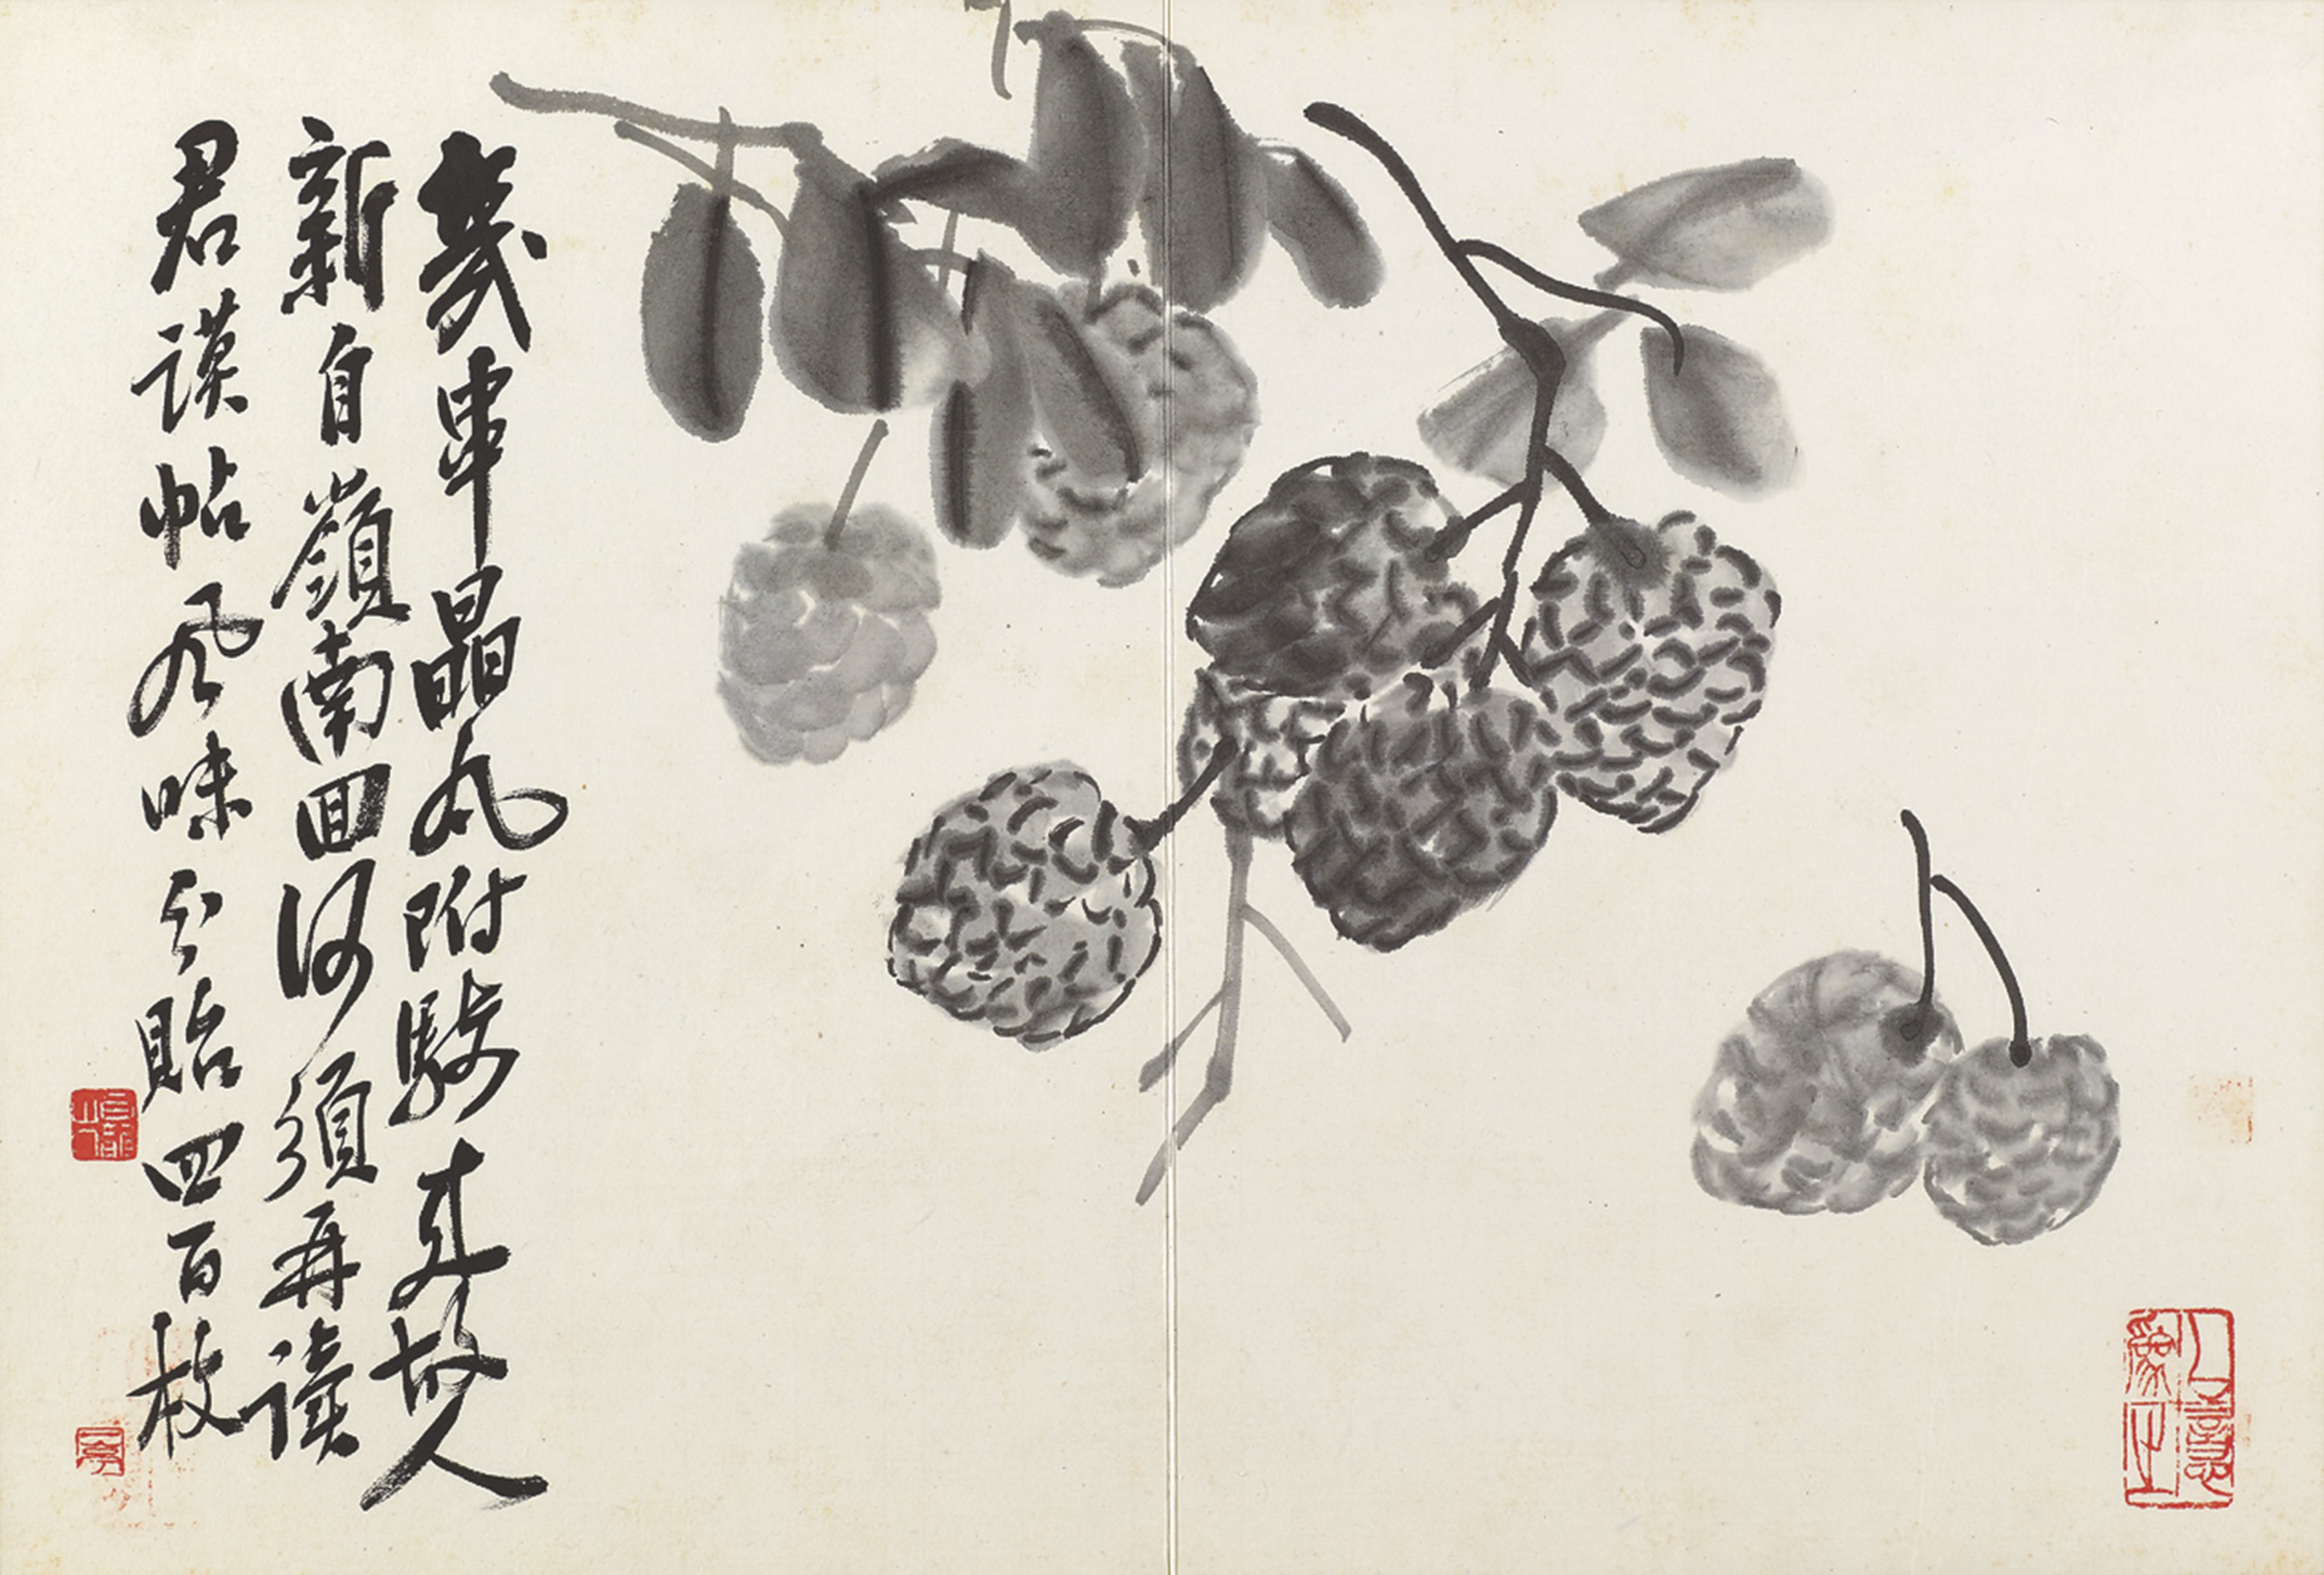 幾串晶丸附驥來故人
新自嶺南回何須再讀
君謨帖風味分貽四百枚